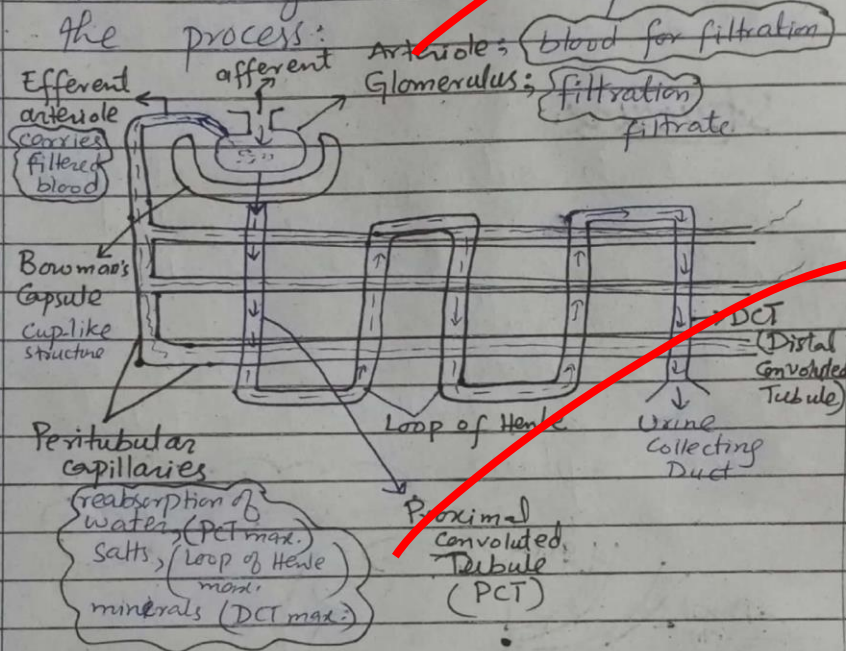 the process:
Arteriole; blood for filtration
afferent
Glomerulus; filtration
filtrate
Efferent
arteriole
carries
filtered
blood
Bowman's
Capsule
Cup-like
structure
DCT
(Distal
Convoluted
Tubule)
Loop of Henle
Urine
Collecting
Duct
Peritubular
capillaries
reabsorption of
water, (PCT max.)
Salts, (Loop of Henle
max.)
minerals (DCT max.)
Proximal
Convoluted
Tubule
(PCT)